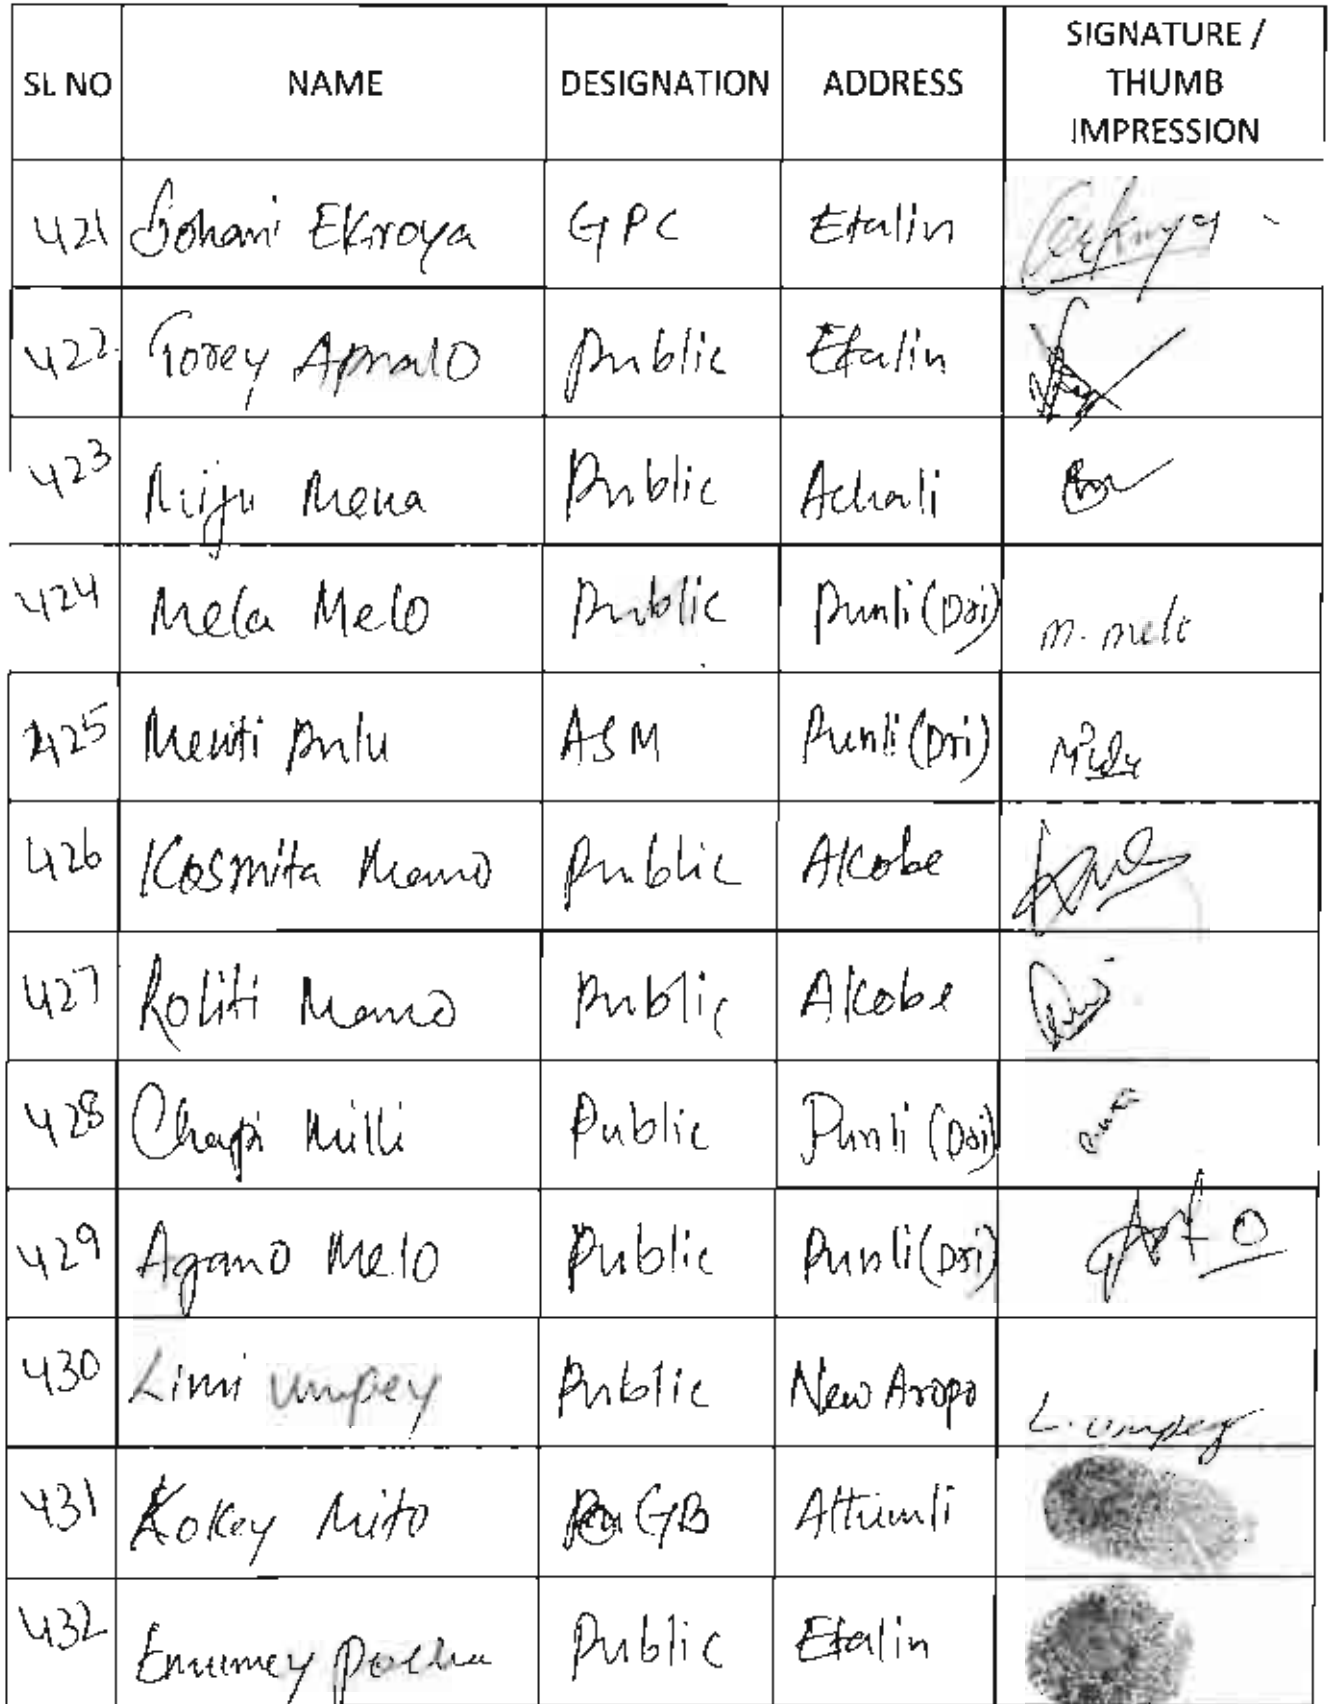 SL NO NAME DESIGNATION ADDRESS SIGNATURE / THUMB IMPRESSION
421 Gohani Ekroya GPC Etalin
422 Torey Apralo Public Etalin
423 Miju Mena Public Achali
424 Mela Melo Public Punli (Dri) m. melo
425 Menti Pulu ASM Punli (Dri)
426 Kosmita Memo Public Akobe
427 Roliti Memo Public Akobe
428 Chapi Milli Public Punli (Dri)
429 Agano Melo Public Punli (Dri)
430 Limi Umpey Public New Aropo L. umpey
431 Kokey Mito GB Attunli
432 Enumey Pocha Public Etalin